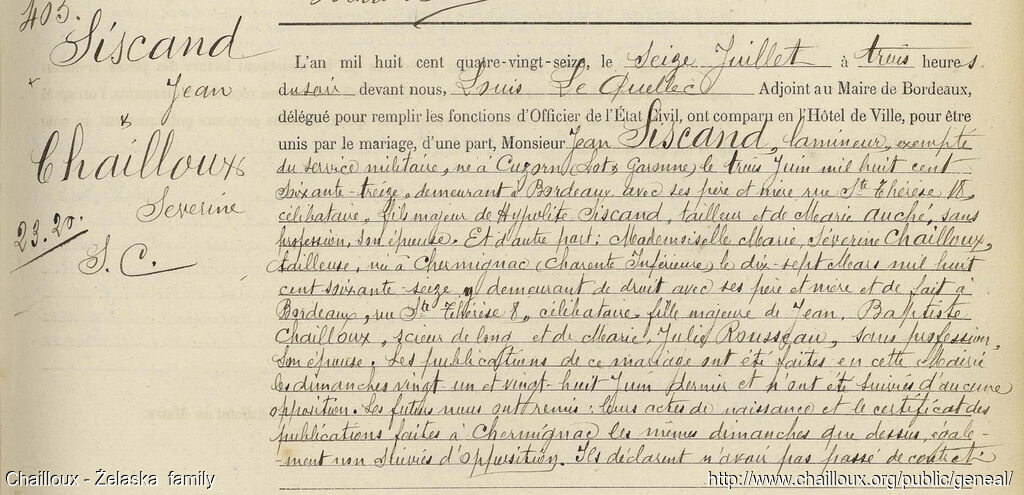 405.
Siscand
Jean
x
Chailloux
Severine
23.20.
S. C.
L'an mil huit cent quatre-vingt-seize, le Seize Juillet à trois heures
du soir devant nous, Louis Le Quellec Adjoint au Maire de Bordeaux,
délégué pour remplir les fonctions d'Officier de l'État Civil, ont comparu en l'Hôtel de Ville, pour être
unis par le mariage, d'une part, Monsieur Jean Siscand, lamineur, exempté
du service militaire, né à Cuzorn (Lot & Garonne) le trois Juin mil huit cent
soixante-treize, demeurant à Bordeaux avec ses père et mère rue Ste Thérèse 18
célibataire, fils majeur de Hypolite Siscand, tailleur et de Marie Auché, sans
profession, son épouse. Et d'autre part; Mademoiselle Marie, Séverine Chailloux,
tailleuse, née à Chermignac (Charente Inférieure) le dix-sept Mars mil huit
cent soixante-seize, demeurant de droit avec ses père et mère et de fait à
Bordeaux, rue Ste Thérèse 8, célibataire fille majeure de Jean, Baptiste
Chailloux, scieur de long et de Marie, Julie Rousseau, sans profession,
son épouse. Les publications de ce mariage ont été faites en cette Mairie
les dimanches vingt un et vingt-huit Juin dernier et n'ont été suivies d'aucune
opposition. Les futurs nous ont remis: leurs actes de naissance et le certificat des
publications faites à Chermignac les mêmes dimanches que dessus, égale-
-ment non suivies d'opposition. Ils déclarent n'avoir pas passé de contrat.
Chailloux - Želaska family
http://www.chailloux.org/public/geneal/